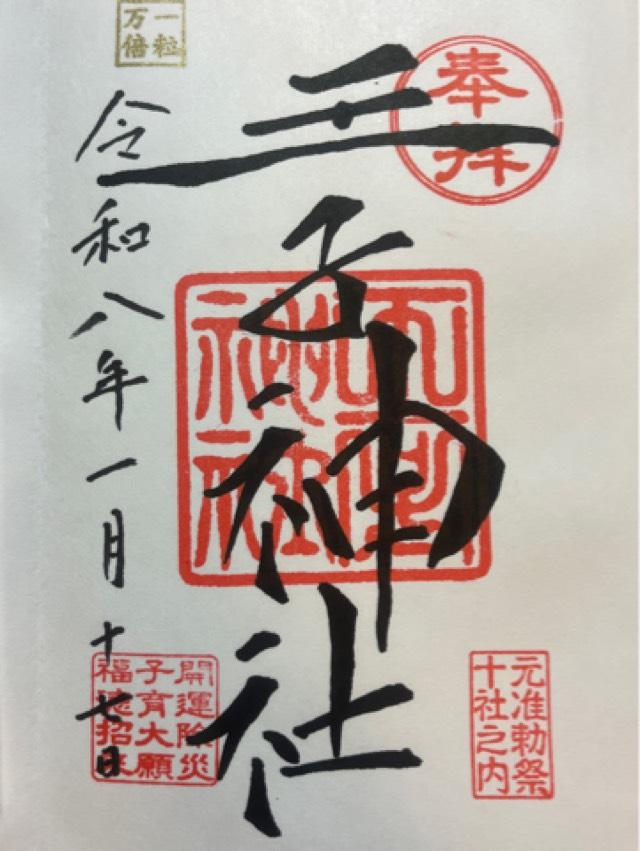 奉拝
王子神社
元准勅祭
十社之内
一粒
万倍
令和八年一月十七日
開運除災
子育大願
福徳招来
神社